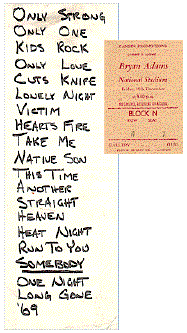 ONLY STRONG
ONLY ONE
KIDS ROCK
ONLY LOVE
CUTS KNIFE
LONELY NIGHT
VICTIM
HEARTS FIRE
TAKE ME
NATIVE SON
THIS TIME
ANOTHER
STRAIGHT
HEAVEN
HEAT NIGHT
RUN TO YOU
SOMEBODY
ONE NIGHT
LONG GONE
'69
Bryan Adams
National Stadium
BLOCK N